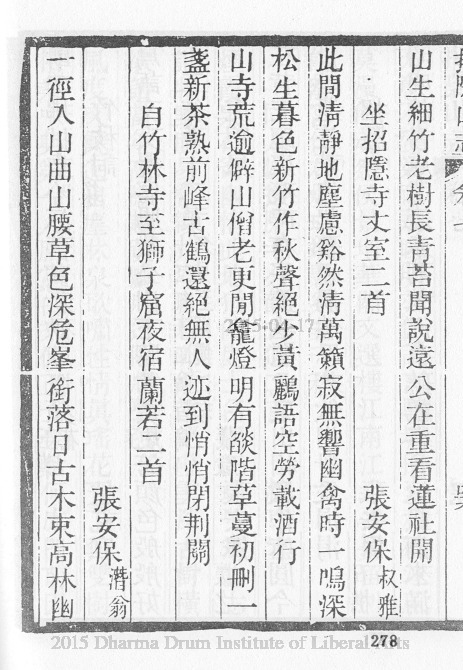 山生細竹老樹長青苔聞說遠公在重看蓮社開
坐招隱寺丈室二首 張安保叔雅
此間清靜地塵慮谿然清萬籟寂無響幽禽時一鳴深
松生暮色新竹作秋聲絕少黃鸝語空勞載酒行
山寺荒逾僻山僧老更閒龕燈明有燄階草蔓初刪一
盞新茶熟前峰古鶴還絕無人迹到悄悄閉荆關
自竹林寺至獅子窟夜宿蘭若二首
張安保潛翁
一徑入山曲山腰草色深危峯銜落日古木束高林幽
278
2015 Dharma Drum Institute of Liberal Arts